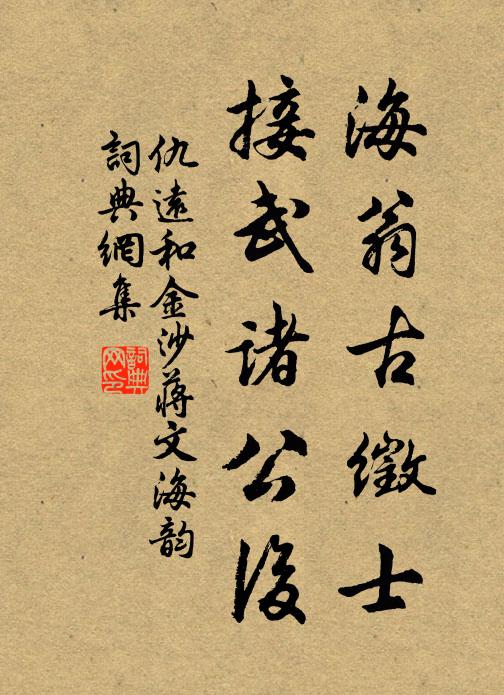 海翁古徵士
接武諸公後
仇遠和金沙蔣文海韵
詞典網集
詞典網印